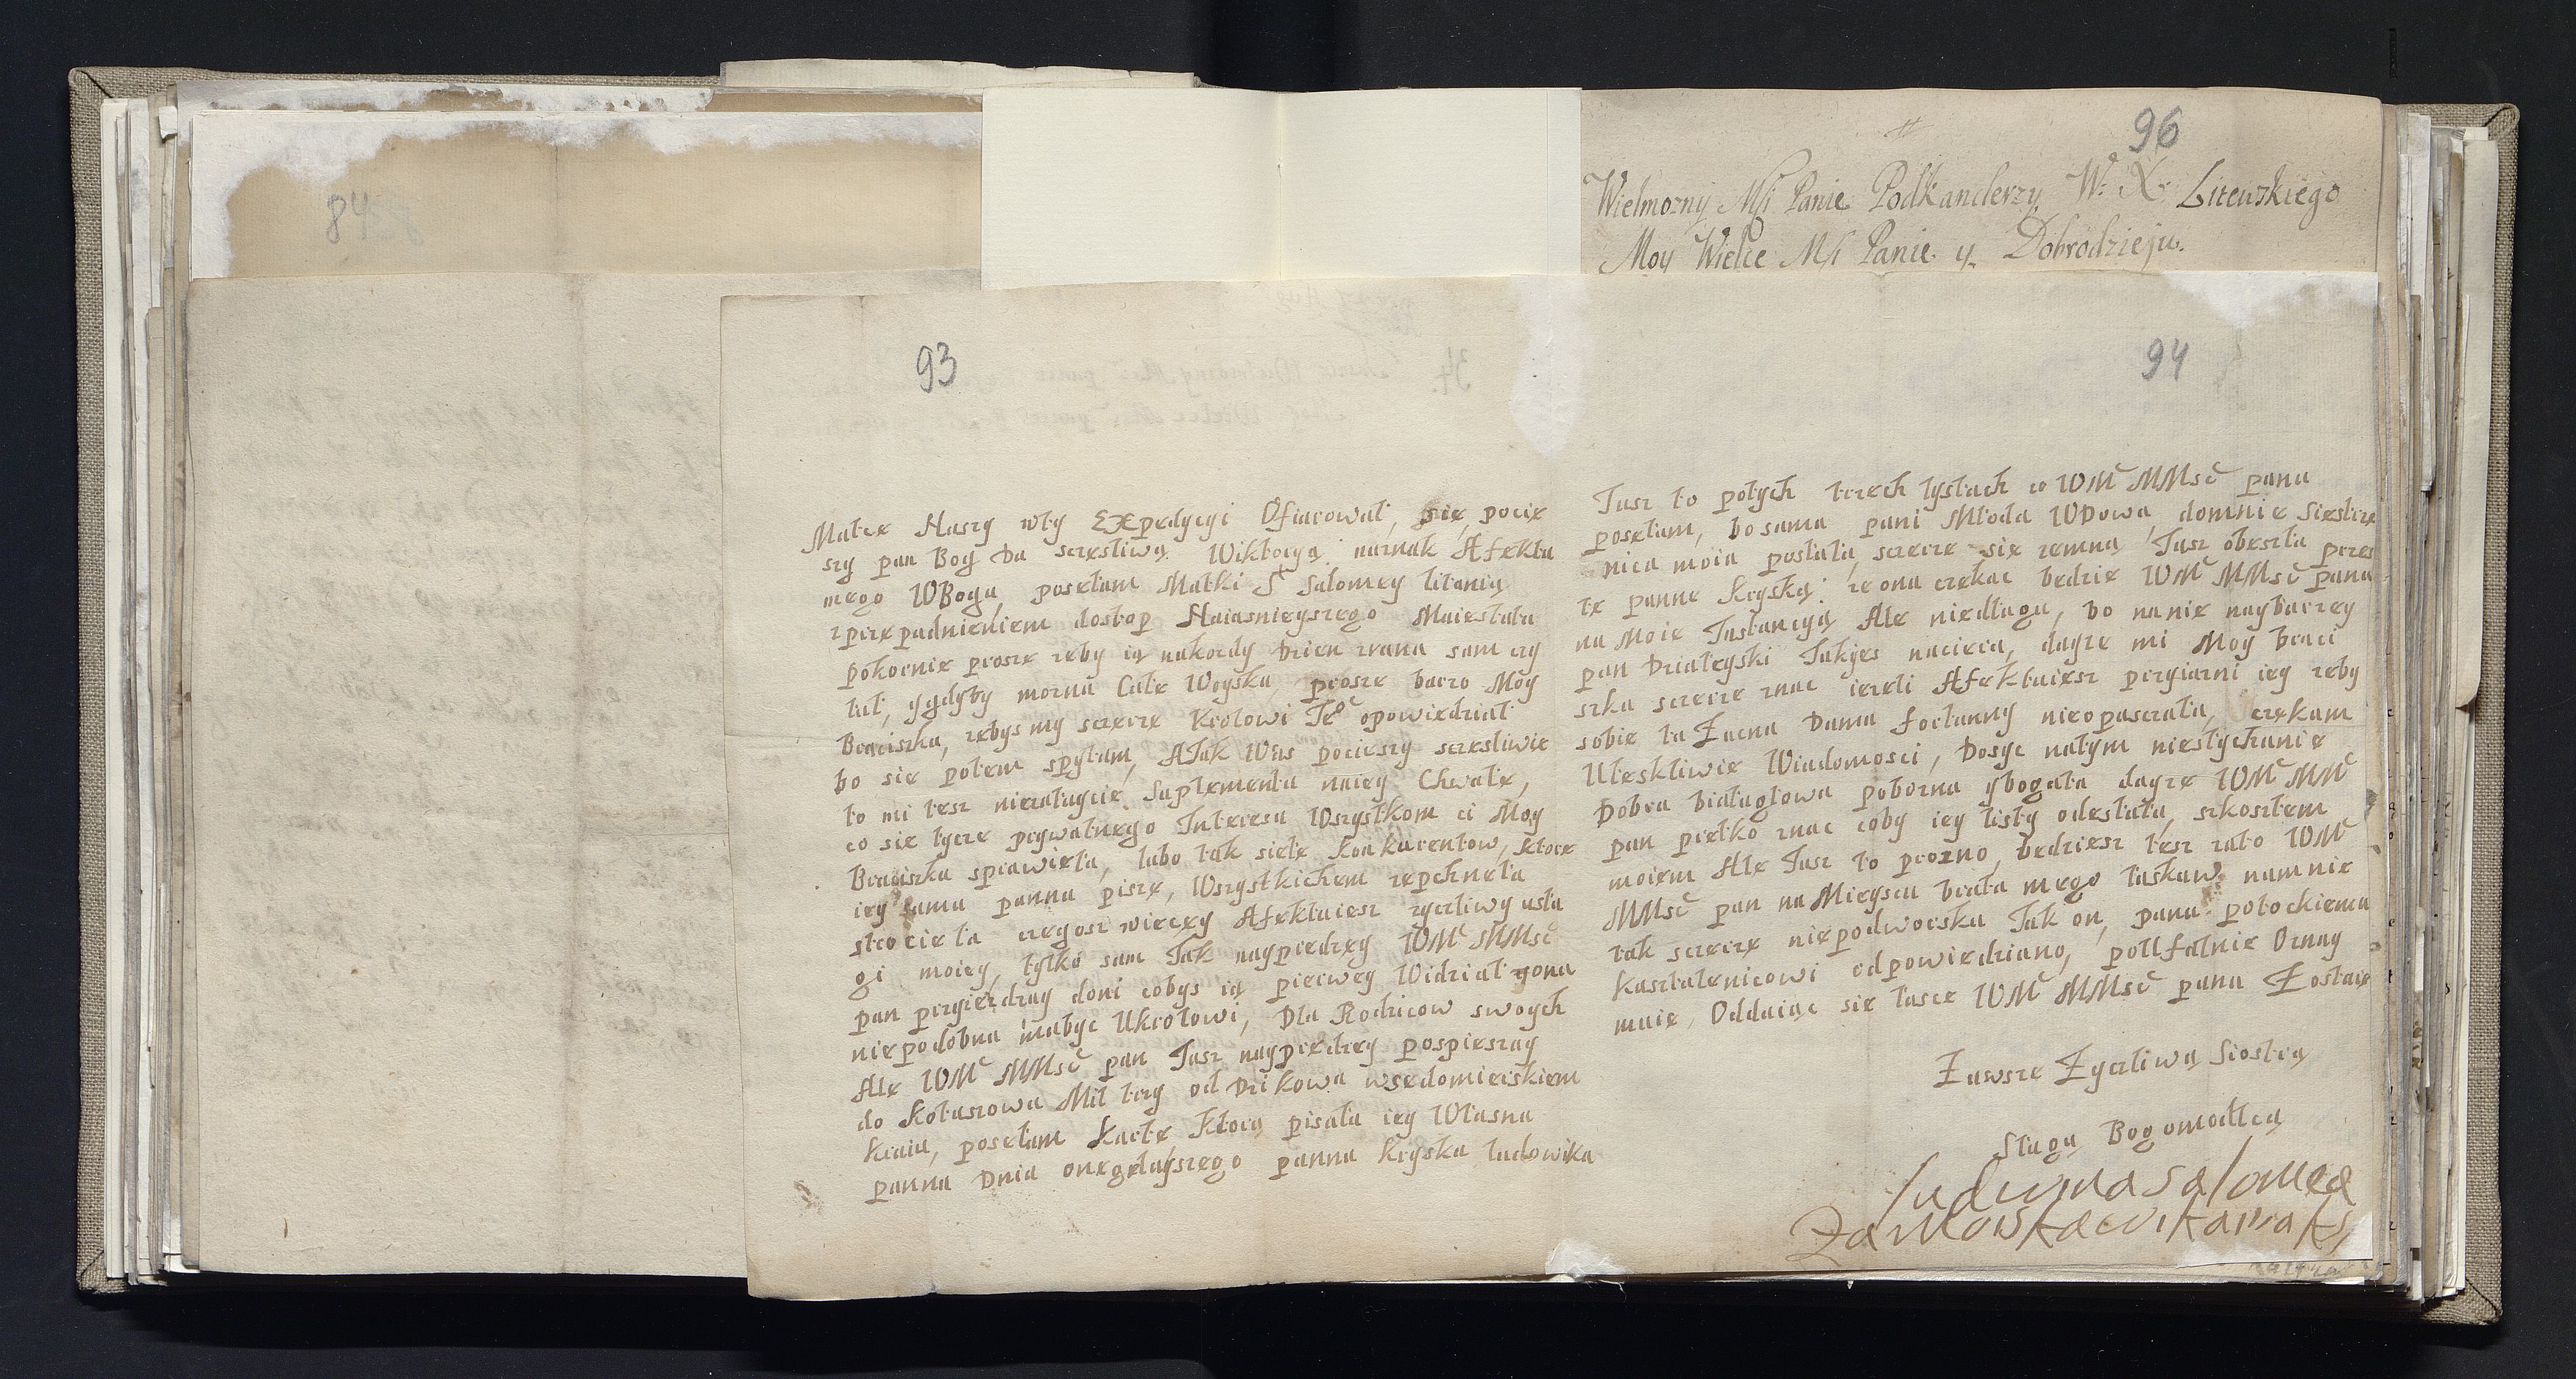 84
96
Wielmozny Mſi Panie Podkanclerzy W: X: Litewskiego
Moy Wielce Mſi Panie y Dobrodzieju.
93
Matce Naszy wty Expedycyi Ofiarował, się, pocie
szy pan Bog Da sczesliwą Wiktoryą naznak Afektu
mego WBogu posełam Matki S Salomey litanią
zprzepadnieniem dostop Naiasnieyszego Maiestatu
pokornie prosze zeby ią nakozdy Dzien zrana sam czy
tał, ygdyby mozna Całe Woysko, prosze barzo Moy
Braciszku, zebys my sczerze Krolowi Je opowiedział
bo sie potem spytam, AJak Was pocieszy sczesliwie
to mi tesz niezałuycie Suplementu naiey Chwałe,
co sie tycze prywatnego Interesu Wszystkom ci Moy
Braciszku sprawieła, lubo tak sieła konkurentow, ktore
iey sama panna pisze, Wszystkichem zepchneła
strocieła czegosz wiecey Afektuiesz zyczliwy usłu
gi moiey, tylko sam Jak naypredzey WM MMsc
pan przyiezdzay doni cobys ią pierwey Widział yona
niepodobna mabyc Ukrolowi, Dla Rodzicow swoych
Ale WM MMsc pan Jusz nayprędzey pospieszay
do Kotuszowa Mil trzy od Dzikowa wsedomierskiem
kraiu, posełam karte ktorą pisała iey Własna
panna Dnia onegdayszego panna Kryska ludowika
94
Jusz to potych trzech lystach co WM MMsc pana
posełam, bo sama pani Młoda WDowa domnie Siestrze
nica moia posłała, sczerze sie zemną Jusz obeszła przes
te panne Kryską: ze ona czekac bedzie WM MMsc pana
na Moie Jnstancyą Ale niedługo, bo nanie naybarzey
pan Działeyski Jakyes naciera, dayze mi Moy braci
szku sczerze znac iezeli Afektuiesz przyiazni iey zeby
sobie ta Zacna Dama fortunny nieopusczała, czekam
Uteskliwie Wiadomosci, Dosyc natym niesłychanie
Dobra białagłowa pobozna ybogata dayze WM MM
pan pretko znac coby iey listy odesłała, szkosztem
moiem Ale Jusz to prozno, bedziesz tesz zato WM
MMsc pan na Mieyscu brata mego łaskaw namnie
tak sczerze niepodworsku Jak on, panu potockiemu
kasztalenicowi odpowiedziano, poUfalnie Oznay
muie, Oddaiąc sie łasce WM MMsc pana Zostaie
Zawsze Zyczliwą Siostrą
Sługą Bogomodlcą
ludwina salomea
Zamoiska